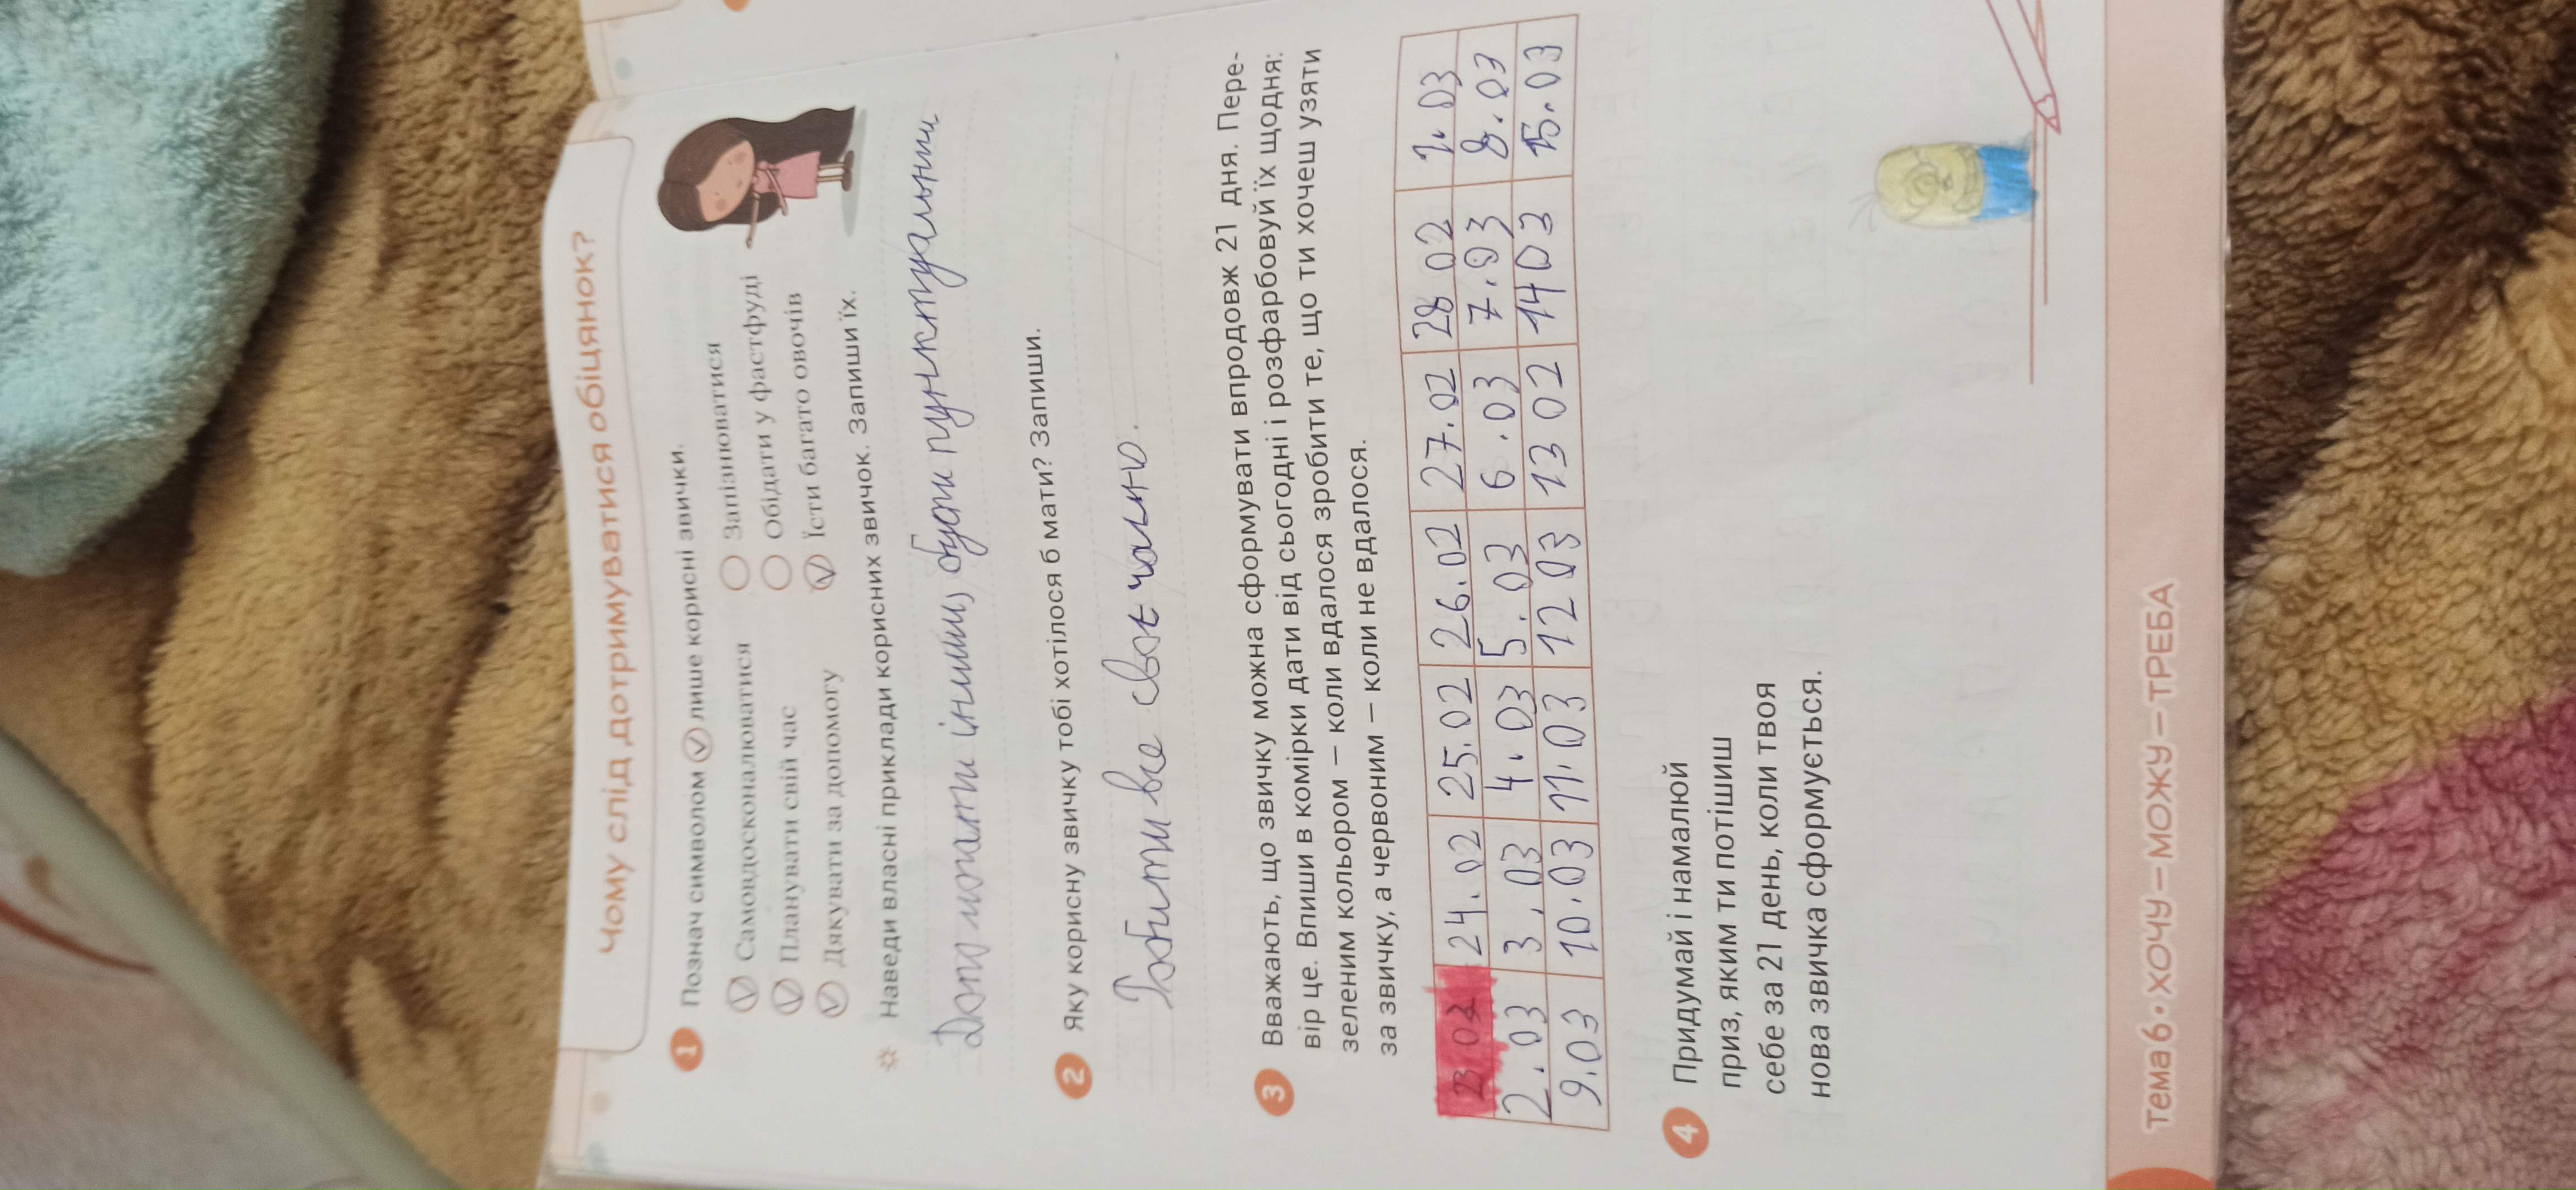 Чому слід дотримуватися обіцянок?
1 Познач символом ✓ лише корисні звички.
✓ Самовдосконалюватися
✓ Планувати свій час
✓ Дякувати за допомогу
Запізнюватися
Обідати у фастфуді
✓ Їсти багато овочів
Наведи власні приклади корисних звичок. Запиши їх.
Допомогати іншим, бути пунктуальним
2 Яку корисну звичку тобі хотілося б мати? Запиши.
Робити все своє чаьно.
3 Вважають, що звичку можна сформувати впродовж 21 дня. Пере-
вір це. Впиши в комірки дати від сьогодні і розфарбовуй їх щодня:
зеленим кольором – коли вдалося зробити те, що ти хочеш узяти
за звичку, а червоним – коли не вдалося.
24.02 25.02 26.02 27.02 28 02 1.03
2.03 3.03 4.03 5.03 6.03 7.03 8.03
9.03 10.03 11.03 12 03 13 02 14 03 15.03
4 Придумай і намалюй
приз, яким ти потішиш
себе за 21 день, коли твоя
нова звичка сформується.
Тема 6 • ХОЧУ – МОЖУ – ТРЕБА